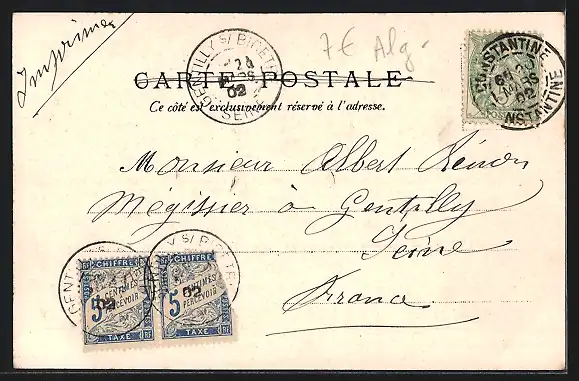 Imprimé
7€ Alg.
GENTILLY S/ BICETRE
02
SEINE
CONSTANTINE
02
CONSTANTINE
POSTES
CARTE POSTALE
Ce côté est exclusivement réservé à l'adresse.
Monsieur Albert
Mégissier à Gentilly
Seine
France
CHIFFRE CHIFFRE
5 CENTIMES 5 CENTIMES
A PERCEVOIR A PERCEVOIR
02 02
TAXE TAXE
RF RF